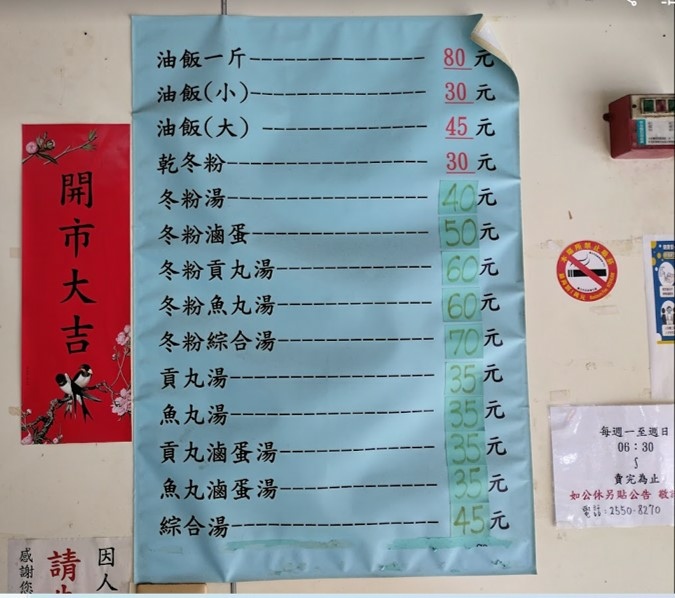 油飯一斤------------------ 80元
油飯(小)------------------ 30元
油飯(大) ----------------- 45元
乾冬粉-------------------- 30元
冬粉湯-------------------- 40元
冬粉滷蛋------------------ 50元
冬粉貢丸湯---------------- 60元
冬粉魚丸湯---------------- 60元
冬粉綜合湯---------------- 70元
貢丸湯-------------------- 35元
魚丸湯-------------------- 35元
貢丸滷蛋湯---------------- 35元
魚丸滷蛋湯---------------- 35元
綜合湯-------------------- 45元
開市大吉
每週一至週日
06：30
∫
賣完為止
如公休另貼公告
電話：2550-8270
因人
請
感謝您